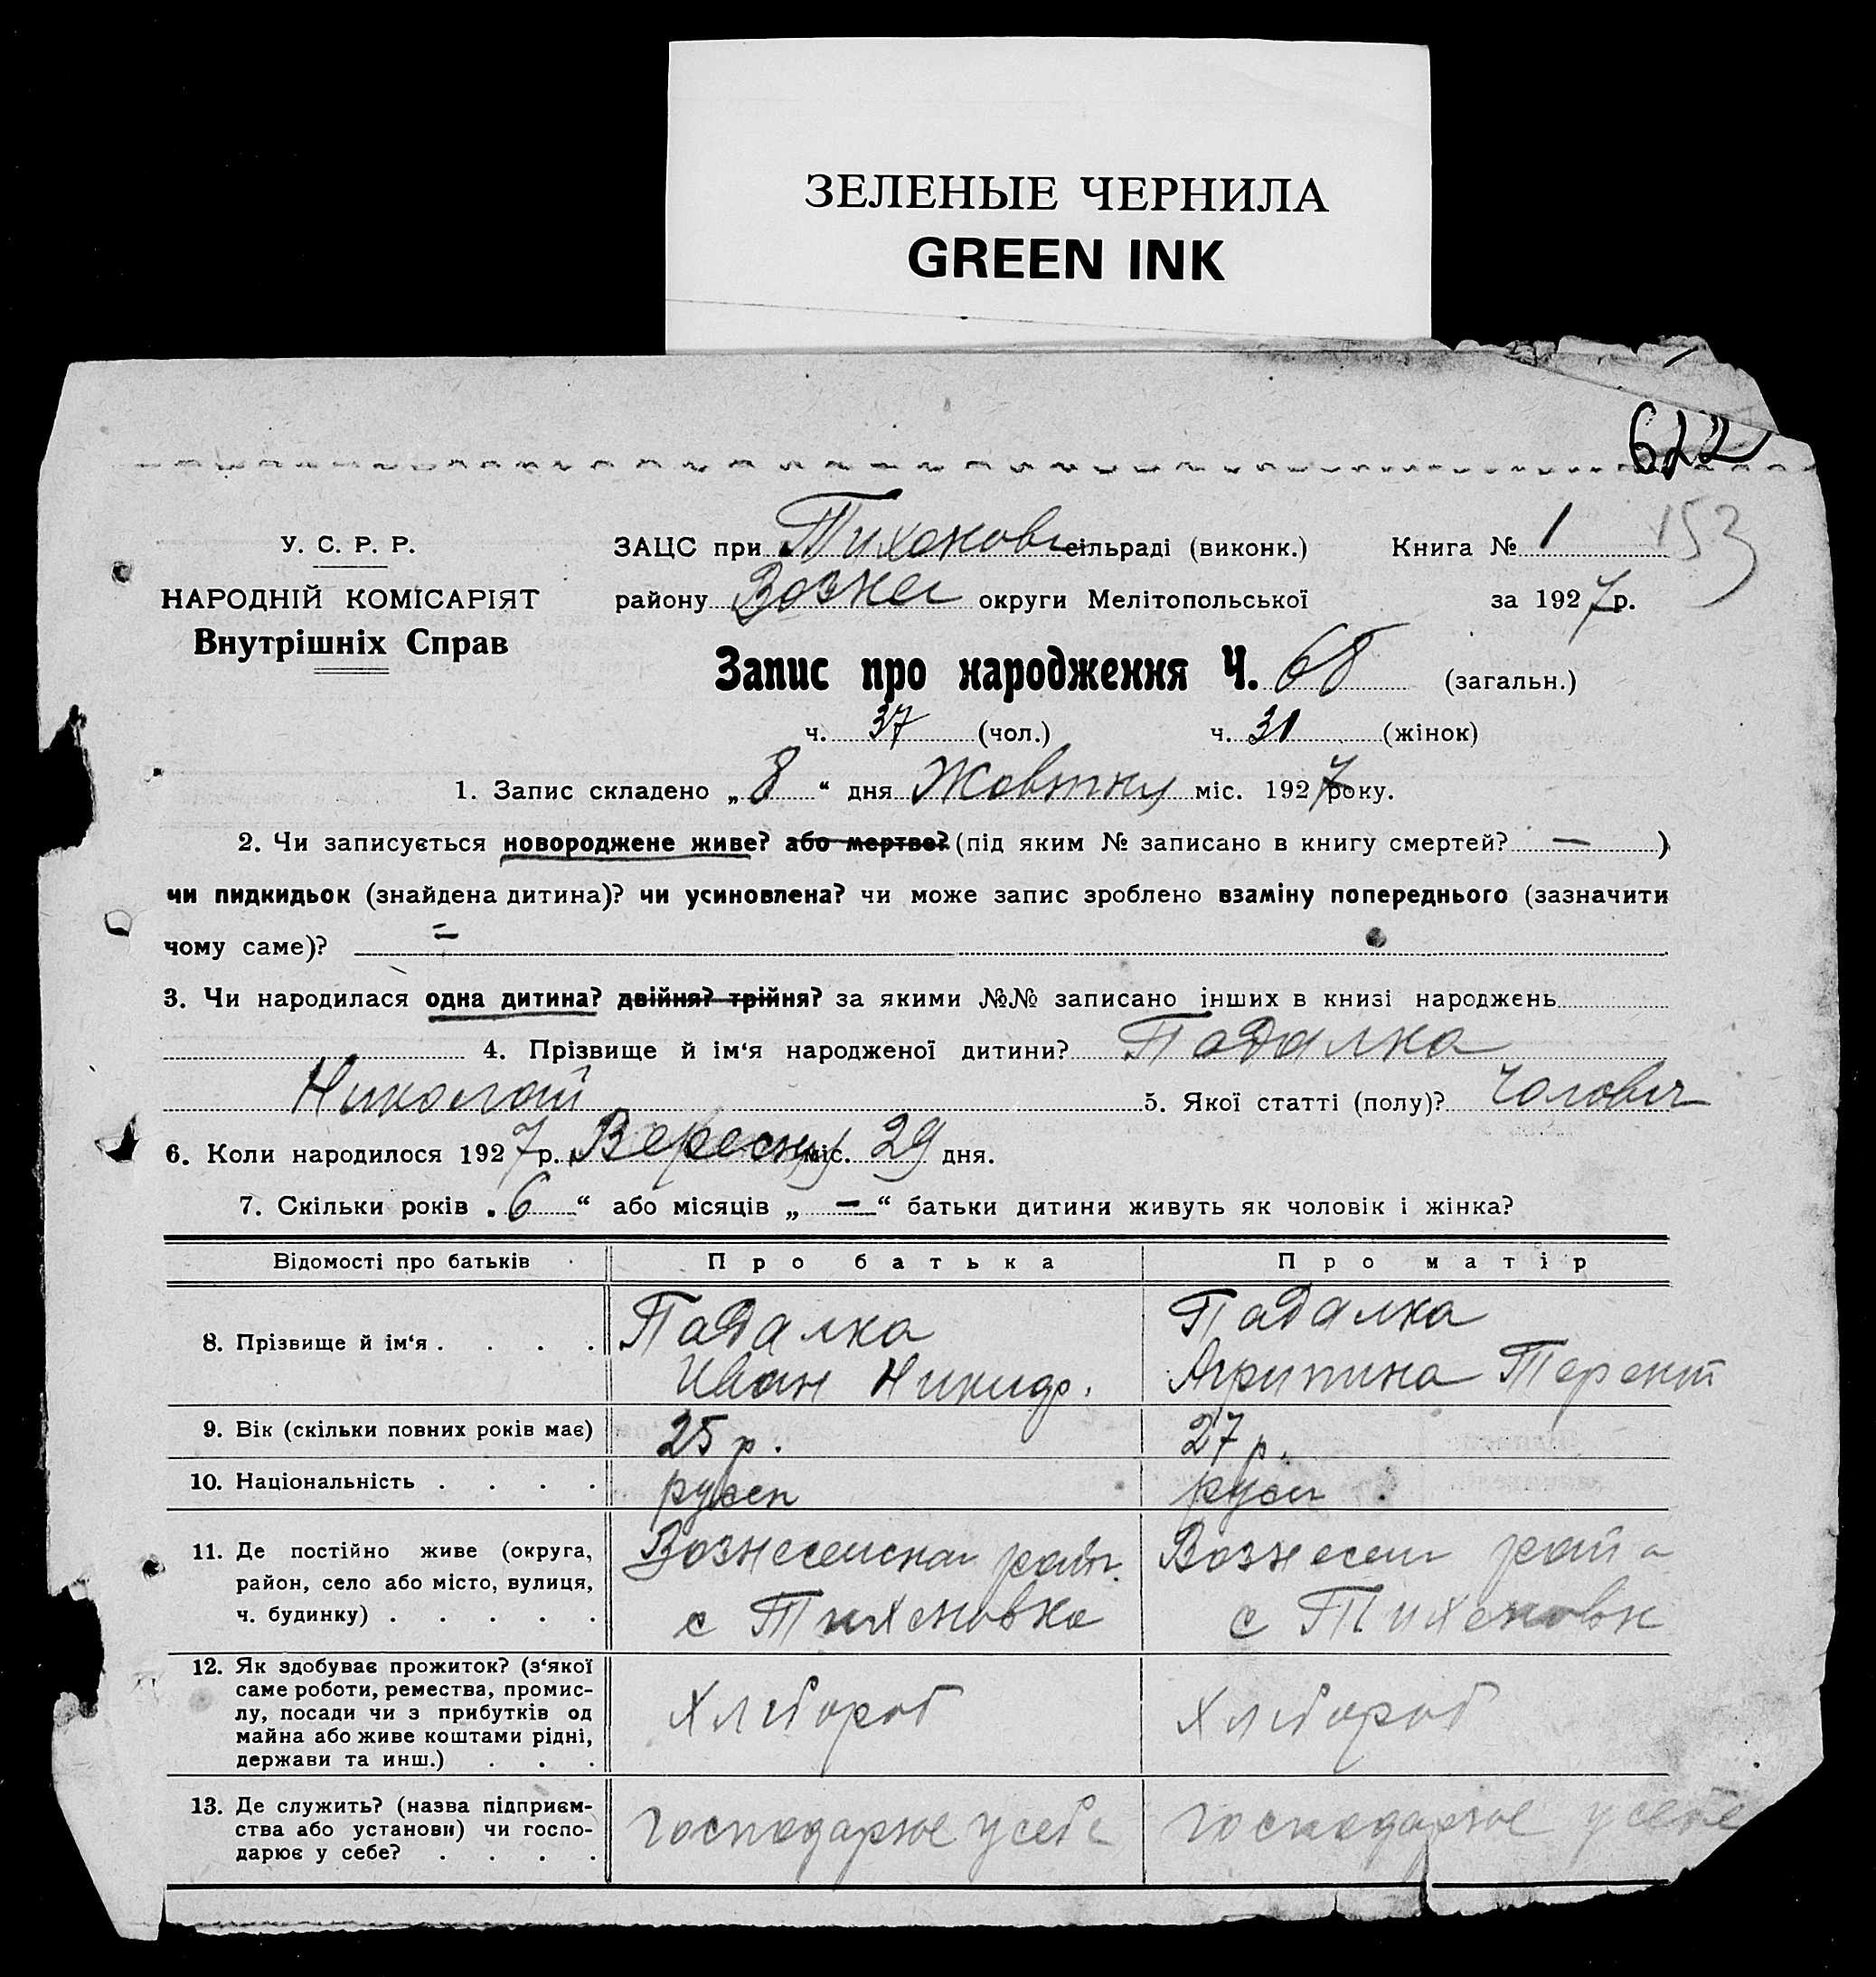 ЗЕЛЕНЫЕ ЧЕРНИЛА
GREEN INK
622
153
У. С. Р. Р.
НАРОДНІЙ КОМІСАРІЯТ
Внутрішніх Справ
ЗАЦС при Тихонов сільраді (виконк.) Книга № 1
району Вознес округи Мелітопольської за 1927 р.
Запис про народження Ч. 68 (загальн.)
ч. 37 (чол.) ч. 31 (жінок)
1. Запис складено „ 8 “ дня Жовтня міс. 1927 року.
2. Чи записується новороджене живе? або мертве? (під яким № записано в книгу смертей? — )
чи пидкидьок (знайдена дитина)? чи усиновлена? чи може запис зроблено взаміну попереднього (зазначити
чому саме)? =
3. Чи народилася одна дитина? двійня? трійня? за якими №№ записано інших в книзі народжень
4. Прізвище й ім‘я народженої дитини? Падалка
Николай 5. Якої статті (полу)? Чолович
6. Коли народилося 1927 р. Вересня міс. 29 дня.
7. Скільки років „ 6 “ або місяців „ — “ батьки дитини живуть як чоловік і жінка?
Відомості про батьків Про батька Про матір
8. Прізвище й ім‘я . . . . Падалка Падалка
Иван Никиф. Агрипина Терент
9. Вік (скільки повних років має) 25 р. 27 р.
10. Національність . . . . русск русск
11. Де постійно живе (округа, район, село або місто, вулиця, ч. будинку) . . . . . Вознесенский район Вознесен район
с Тихоновка с Тихоновк
12. Як здобуває прожиток? (з‘якої
саме роботи, ремества, промис-
лу, посади чи з прибутків од
майна або живе коштами рідні,
держави та инш.) . . . Хлібороб Хлібороб
13. Де служить? (назва підприєм-
ства або установи) чи госпо-
дарює у себе? . . . . господарює у себе господарює у себе